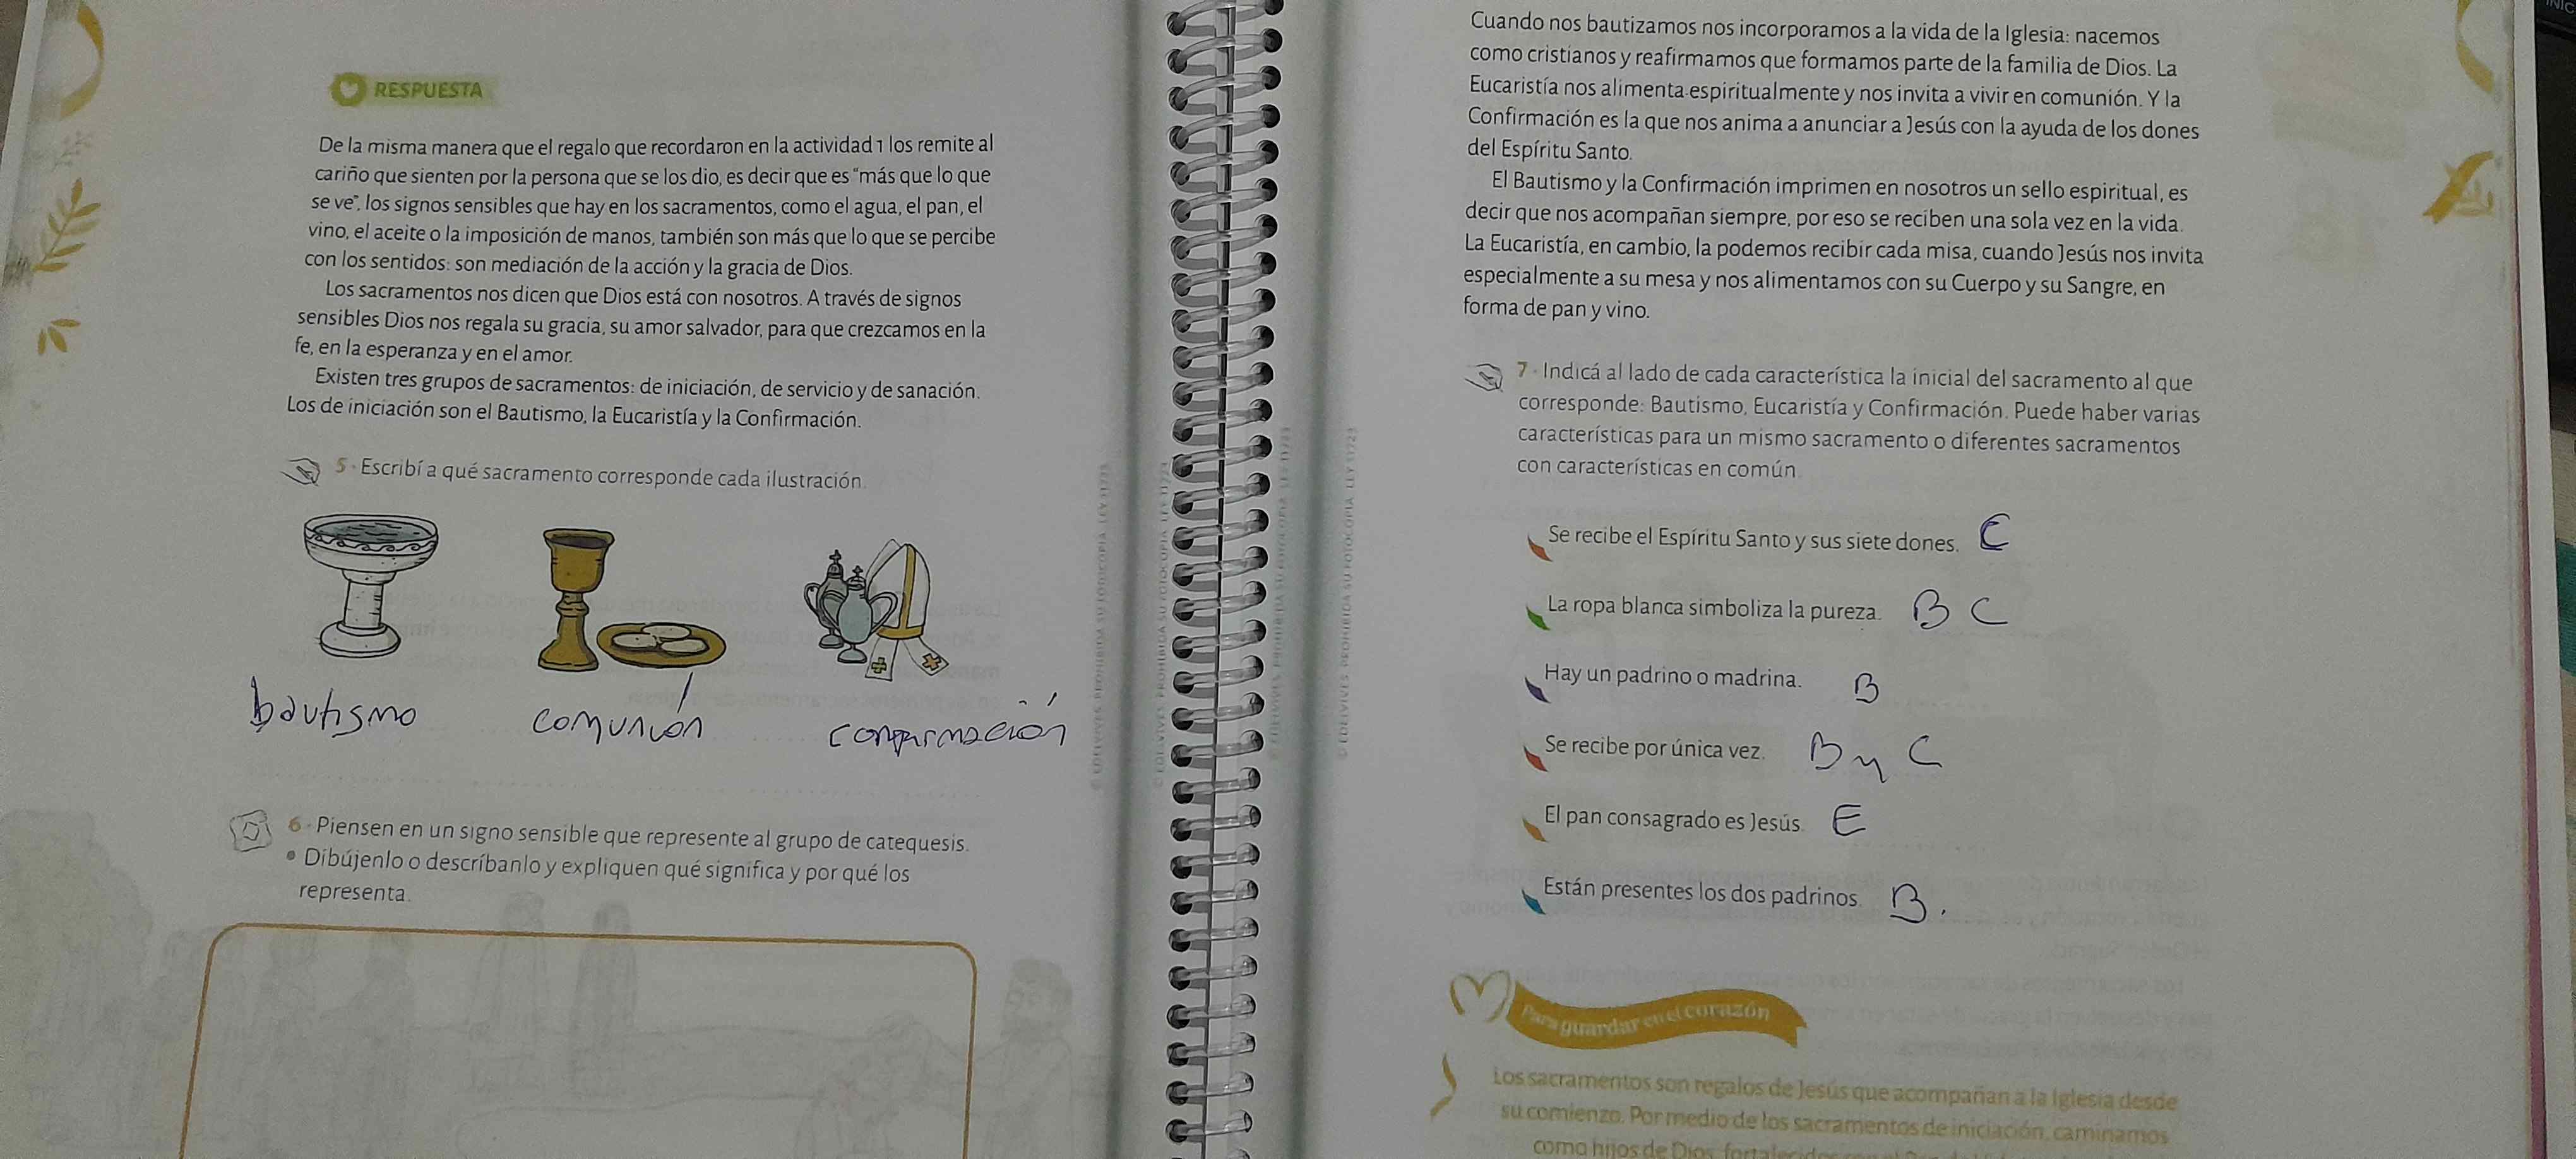 RESPUESTA
De la misma manera que el regalo que recordaron en la actividad 1 los remite al
cariño que sienten por la persona que se los dio, es decir que es "más que lo que
se ve", los signos sensibles que hay en los sacramentos, como el agua, el pan, el
vino, el aceite o la imposición de manos, también son más que lo que se percibe
con los sentidos: son mediación de la acción y la gracia de Dios.
Los sacramentos nos dicen que Dios está con nosotros. A través de signos
sensibles Dios nos regala su gracia, su amor salvador, para que crezcamos en la
fe, en la esperanza y en el amor.
Existen tres grupos de sacramentos: de iniciación, de servicio y de sanación.
Los de iniciación son el Bautismo, la Eucaristía y la Confirmación.
5 · Escribí a qué sacramento corresponde cada ilustración.
bautismo comunión confirmación
6 · Piensen en un signo sensible que represente al grupo de catequesis.
• Dibújenlo o descríbanlo y expliquen qué significa y por qué los
representa.
© EDELVIVES PROHIBIDA SU FOTOCOPIA. LEY 11.723
© EDELVIVES PROHIBIDA SU FOTOCOPIA. LEY 11.723
Cuando nos bautizamos nos incorporamos a la vida de la Iglesia: nacemos
como cristianos y reafirmamos que formamos parte de la familia de Dios. La
Eucaristía nos alimenta espiritualmente y nos invita a vivir en comunión. Y la
Confirmación es la que nos anima a anunciar a Jesús con la ayuda de los dones
del Espíritu Santo.
El Bautismo y la Confirmación imprimen en nosotros un sello espiritual, es
decir que nos acompañan siempre, por eso se reciben una sola vez en la vida.
La Eucaristía, en cambio, la podemos recibir cada misa, cuando Jesús nos invita
especialmente a su mesa y nos alimentamos con su Cuerpo y su Sangre, en
forma de pan y vino.
7 · Indicá al lado de cada característica la inicial del sacramento al que
corresponde: Bautismo, Eucaristía y Confirmación. Puede haber varias
características para un mismo sacramento o diferentes sacramentos
con características en común.
Se recibe el Espíritu Santo y sus siete dones. C
La ropa blanca simboliza la pureza. B C
Hay un padrino o madrina. B
Se recibe por única vez. B y C
El pan consagrado es Jesús. E
Están presentes los dos padrinos. B.
Para guardar en el corazón
Los sacramentos son regalos de Jesús que acompañan a la Iglesia desde
su comienzo. Por medio de los sacramentos de iniciación, caminamos
como hijos de Dios,